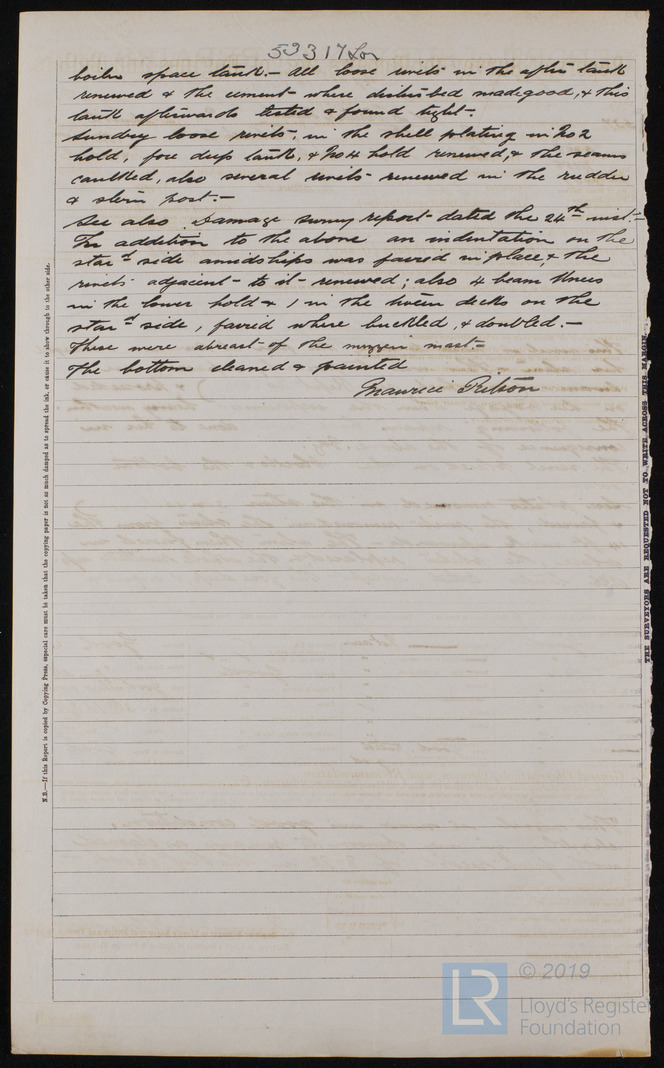 53317 Lon
boiler space tank.- All loose rivets in the after tank
renewed & the cement where disturbed made good, & this
tank afterwards tested & found tight.-
Sundry loose rivets, in the shell plating in No 2
hold, fore deep tank, & No 4 hold renewed, & the seams
caulked, also several rivets renewed in the rudder
& stern post.-
See also Damage survey report dated the 24th inst.-
In addition to the above an indentation on the
starbd side amidships was faired in place, & the
rivets adjacent to it renewed; also 4 beam knees
in the lower hold & 1 in the tween decks on the
starbd side, faired where buckled, & doubled.-
These were abreast of the mizzen mast.-
The bottom cleaned & painted
Maurice Ritson
N.B.—If this Report is copied by Copying Press, especial care must be taken that the copying paper is not so much damped as to spread the ink, or cause it to show through to the other side.
THE SURVEYORS ARE REQUESTED NOT TO WRITE ACROSS THIS MARGIN.
LR
© 2019
Lloyd's Register
Foundation